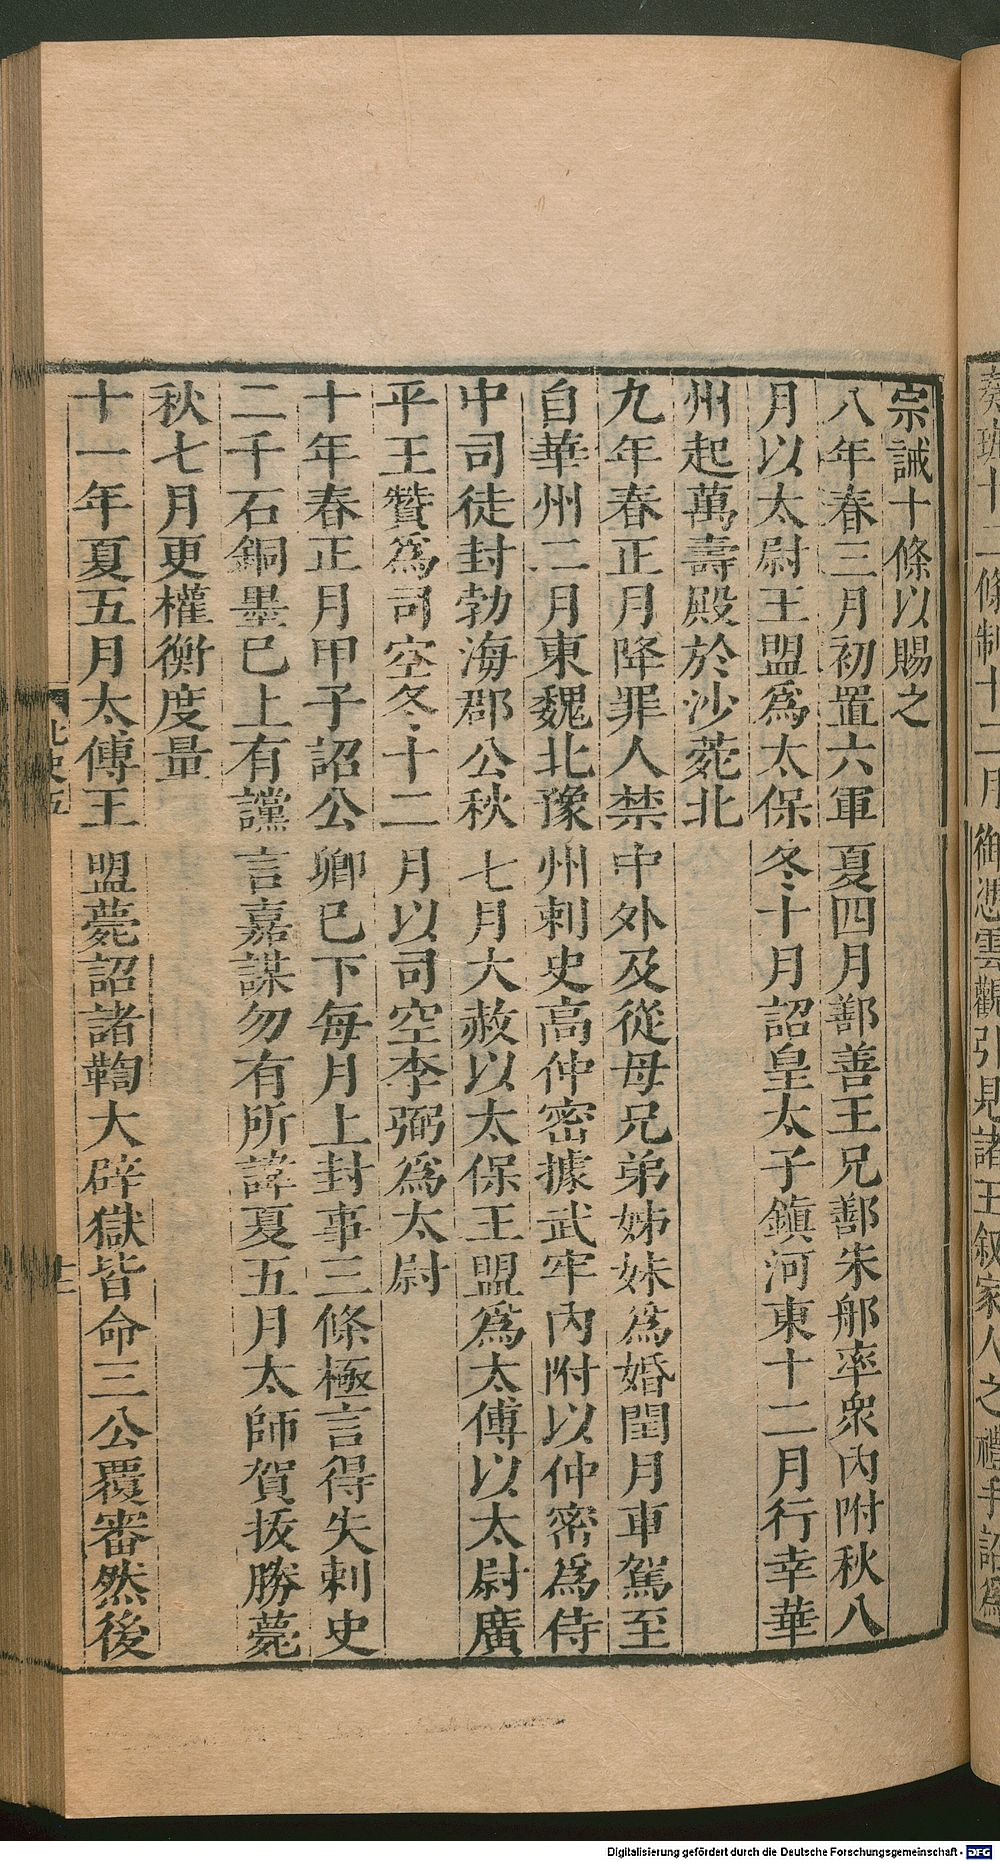 宗誡十條以賜之
八年春三月初置六軍夏四月鄯善王兄鄯朱那率衆內附秋八
月以太尉王盟爲太保冬十月詔皇太子鎮河東十二月行幸華
州起萬壽殿於沙苑北
九年春正月降罪人禁中外及從母兄弟姊妹爲婚閏月車駕至
自華州二月東魏北豫州刺史高仲密據武牢內附以仲密爲侍
中司徒封勃海郡公秋七月大赦以太保王盟爲太傅以太尉廣
平王贊爲司空冬十二月以司空李弼爲太尉
十年春正月甲子詔公卿已下每月上封事三條極言得失刺史
二千石銅墨已上有讜言嘉謀勿有所諱夏五月太師賀拔勝薨
秋七月更權衡度量
十一年夏五月太傅王盟薨詔諸鞫大辟獄皆命三公覆審然後
北史五
十二條制十二月御憑雲觀引見諸王叙家人之禮手詔爲
Digitalisierung gefördert durch die Deutsche Forschungsgemeinschaft - DFG